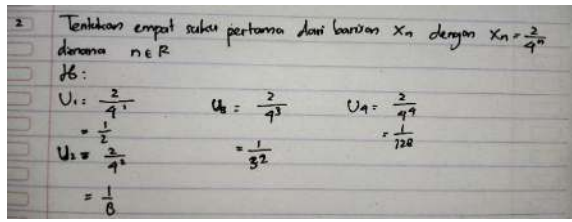 2 Tentukan empat suku pertama dari barisan Xn dengan Xn = 2/4^n
dimana n ∈ R
Jb :
U1 = 2/4^1
= 1/2
U2 = 2/4^2
= 1/8
U3 = 2/4^3
= 1/32
U4 = 2/4^4
= 1/128